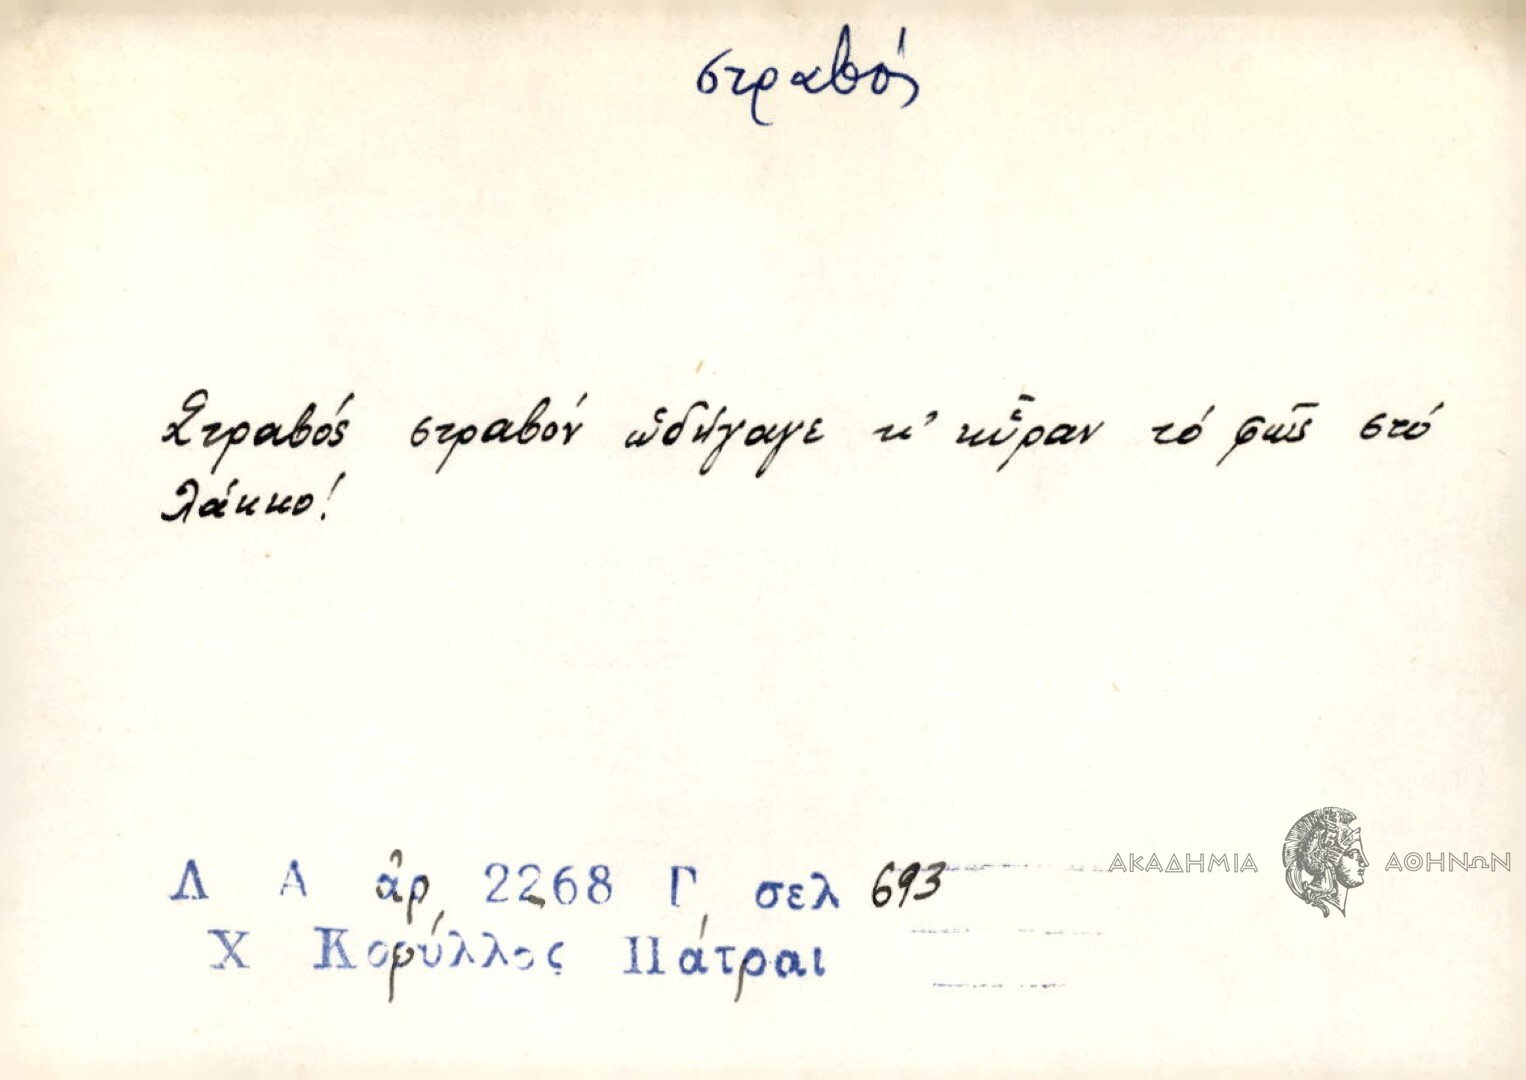 στραβός
Στραβός στραβόν ὡδήγαγε κ' ηὗραν τό φῶς στό
λάκκο!
Λ Α ἀρ 2268 Γ σελ 693
Χ Κορύλλος Πάτραι
ΑΚΑΔΗΜΙΑ ΑΘΗΝΩΝ